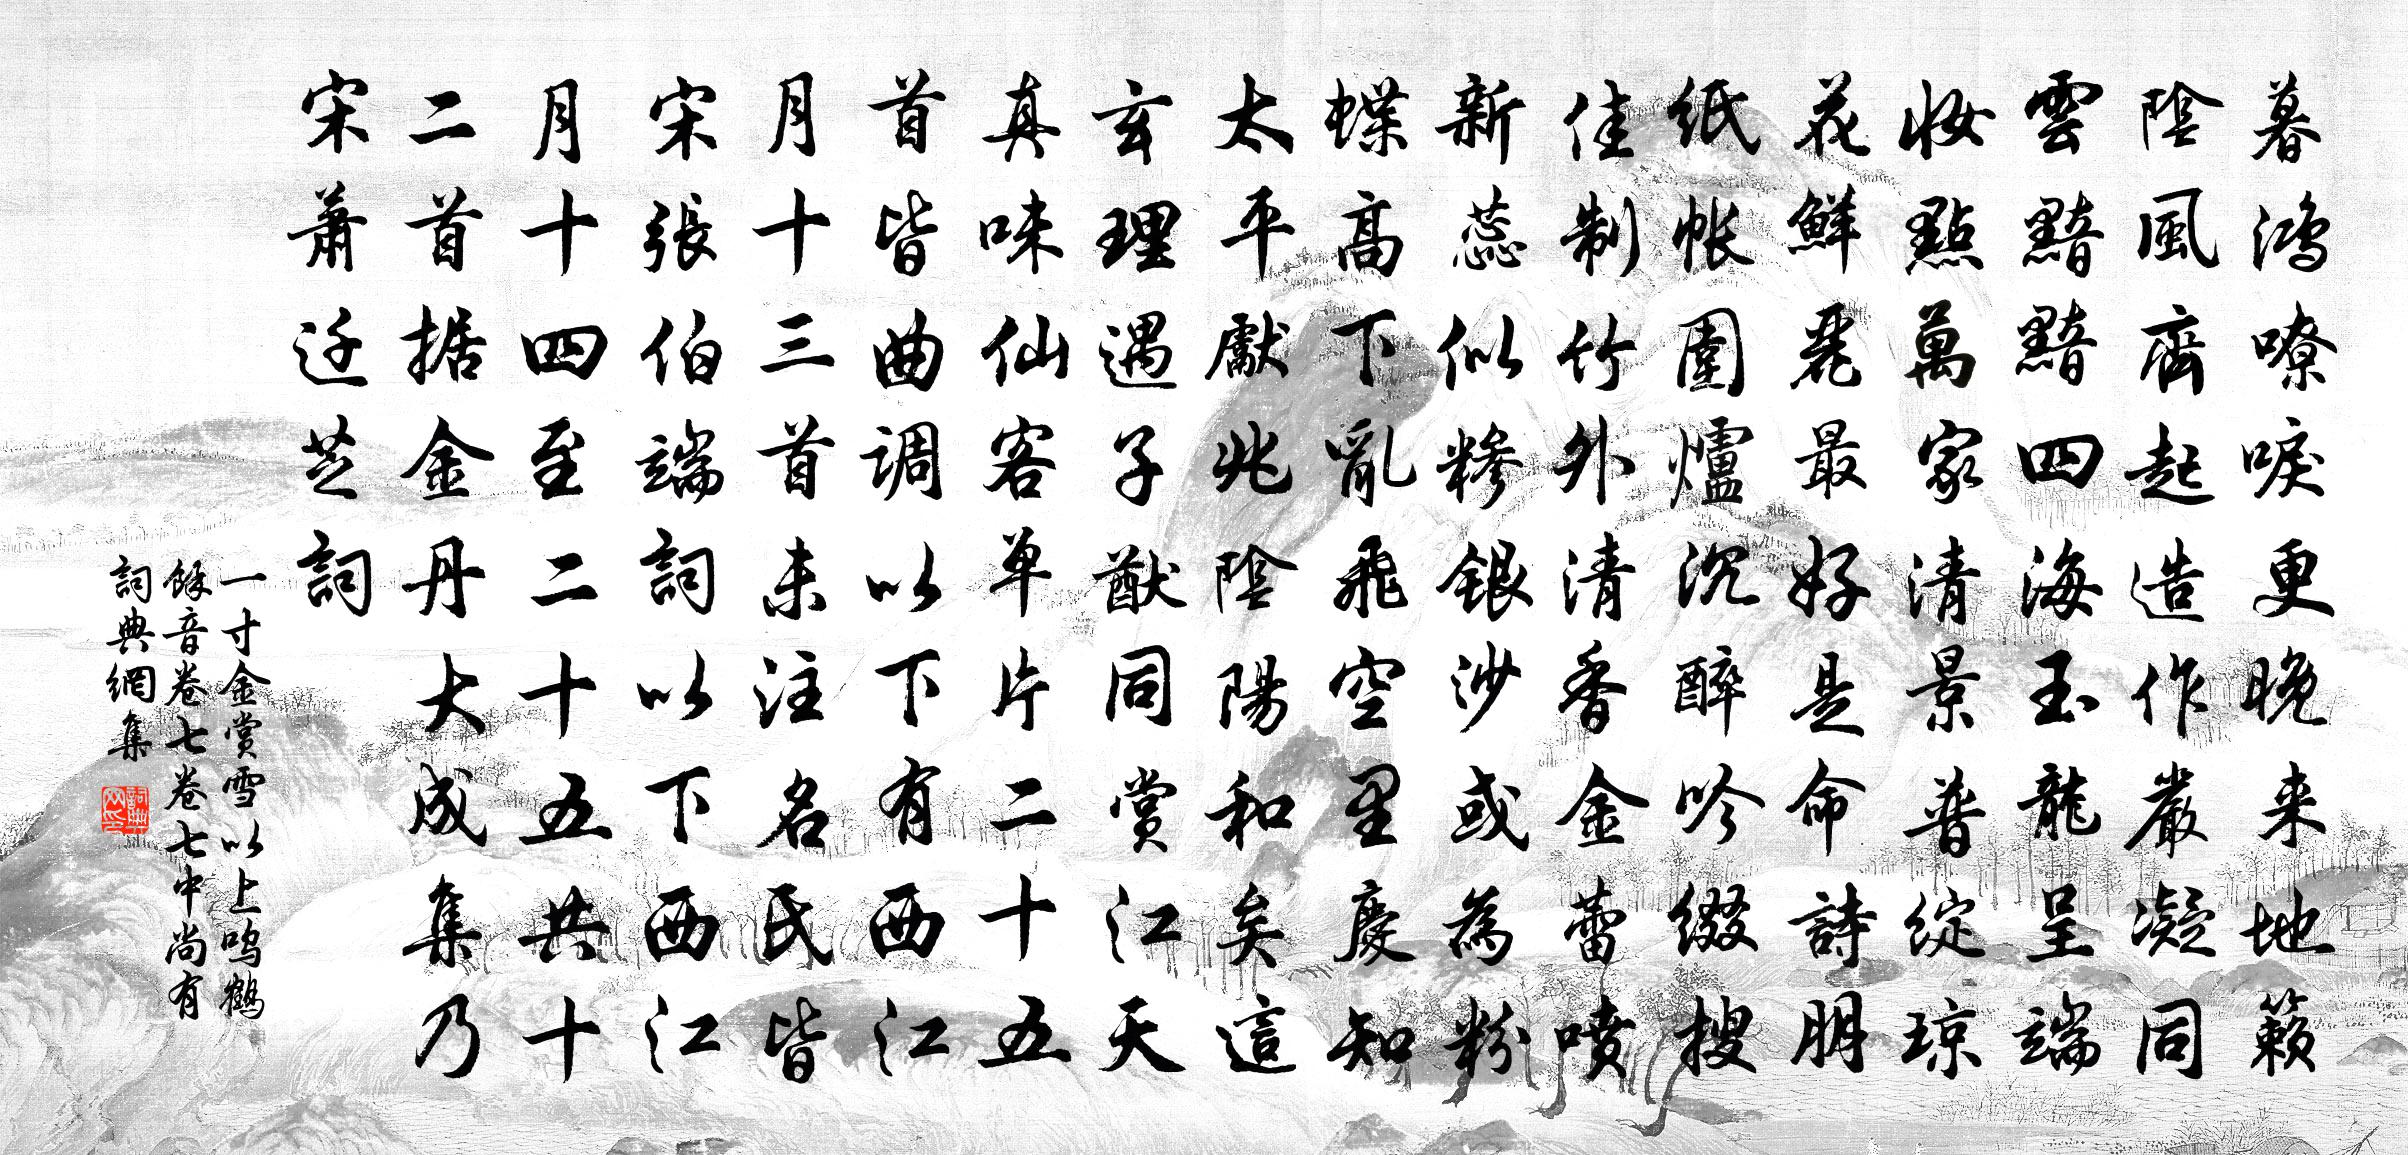 暮鴻嘹唳更晚来地籟
陰風齊起造作嚴凝同
雲黯黯四海玉龍呈端
妝點萬家清景普綻琼
花鮮麗最好是命詩朋
紙帐圍爐沉醉吟缀搜
佳制竹外清香金蕾喷
新蕊似糁銀沙或為粉
蝶高下亂飛空里慶知
太平獻兆陰陽和矣這
玄理遇子猷同赏江天
真味仙客单片二十五
首皆曲调以下有西江
月十三首未注名民皆
宋張伯端詞以下西江
月十四至二十五共十
二首据金丹大成集乃
宋萧迁芝詞
一寸金赏雪以上鸣鶴
餘音卷七卷七中尚有
詞典網集
詞典
网印